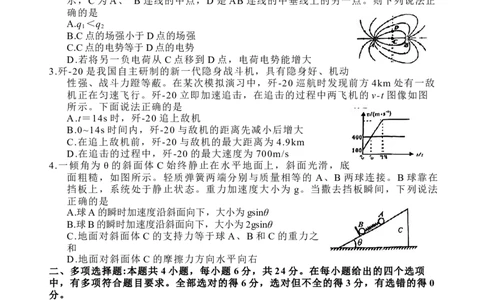 示，C为A、B连线的中点，D是AB连线的中垂线上的另一点。则下列说法正
确的是
A.q₁＜q₂
B.C点的场强小于D点的场强
C.C点的电势等于D点的电势
D.若将另一负电荷从C点移到D点，电荷电势能增大
3.歼-20是我国自主研制的新一代隐身战斗机，具有隐身好、机动
性强、战斗力蹬等戴。在某次模拟演习中，歼-20巡航时发现前方4km处有一敌
机正在匀速飞行。歼-20立即加速追击，在追击的过程中两飞机的v-t图像如图
所示。下面说法正确的是
A.t=14s时，歼-20追上敌机
B.0~14s时间内，歼-20与敌机的距离先减小后增大
C.在追上敌机前，歼-20与敌机的最大距离为4.9km
D.在追击的过程中，歼-20的最大速度为700m/s
v/(m·s⁻¹)
400
100
t/s
4.一倾角为θ的斜面体C始终静止在水平地面上，斜面光滑，底
面粗糙，如图所示。轻质弹簧两端分别与质量相等的A、B两球连接。B球靠在
挡板上，系统处于静止状态。重力加速度大小为g。当撤去挡板瞬间，下列说法
正确的是
A.球A的瞬时加速度沿斜面向下，大小为gsinθ
B.球B的瞬时加速度沿斜面向下，大小为2gsinθ
C.地面对斜面体C的支持力等于球A、B和C的重力之
和
D.地面对斜面体C的摩擦力方向水平向右
A
B
C
θ
二、多项选择题:本题共4小题，每小题6分，共24分。在每小题给出的四个选项
中，有多项符合题目要求。全部选对的得6分，选对但不全的得3分，有选错的得0
分。